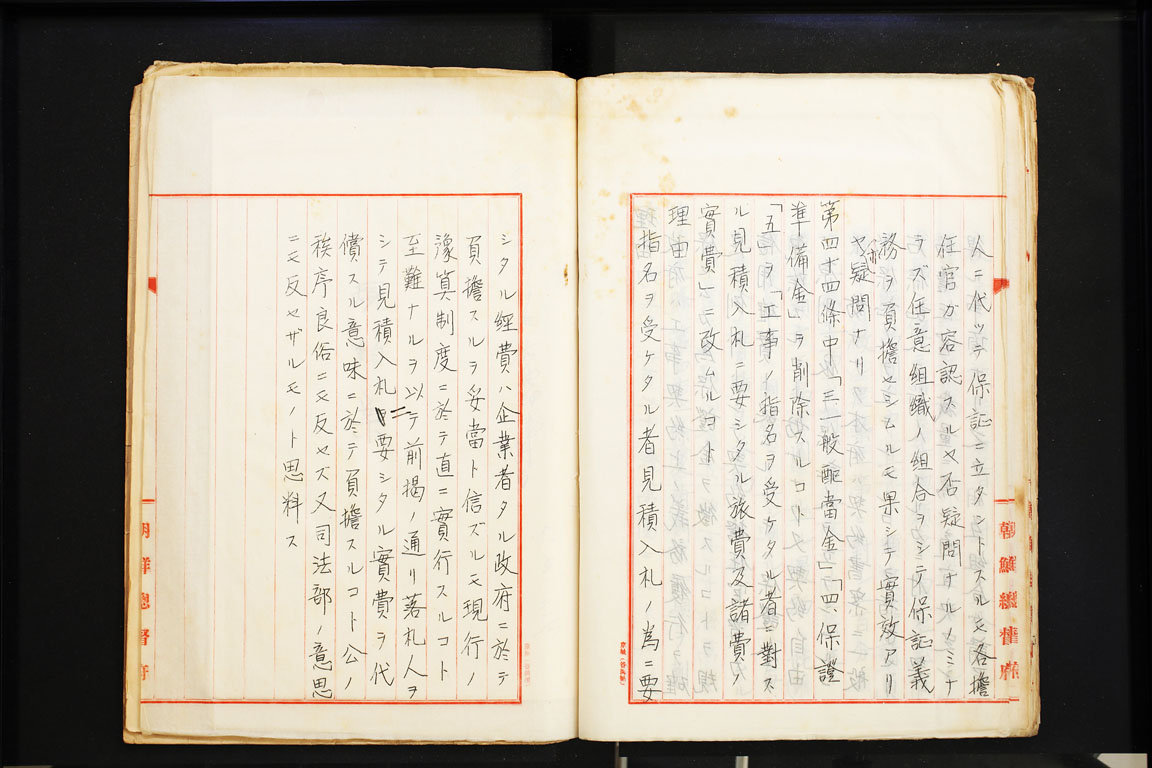 人ニ代ッテ保証ニ立タントスルモ各擔
任官ガ容認スルヤ否疑問ナルノミナ
ラズ任意組織ノ組合ヲシテ保証義
務ヲ負擔セシムルモ果シテ實效アリ
ヤ亦疑問ナリ
第四十四條中「三一般配當金」「四、保證
準備金」ヲ削除スルコト
「五」ヲ「工事ノ指名ヲ受ケタル者ニ對ス
ル見積入札ニ要シタル旅費及諸費ノ
實費」ニ改ムルヿト
理由
指名ヲ受ケタル者見積入札ノ為ニ要
朝鮮總督府
シタル經費ハ企業者タル政府ニ於テ
負擔スルヲ妥當ト信ズルモ現行ノ
豫算制度ニ於テ直ニ實行スルコト
至難ナルヲ以テ前揭ノ通リ落札人ヲ
シテ見積入札ニ要シタル實費ヲ代
償スル意味ニ於テ負擔スルコト公ノ
秩序良俗ニモ反セズ又司法部ノ意思
ニモ反セザルモノト思料ス
朝鮮總督府